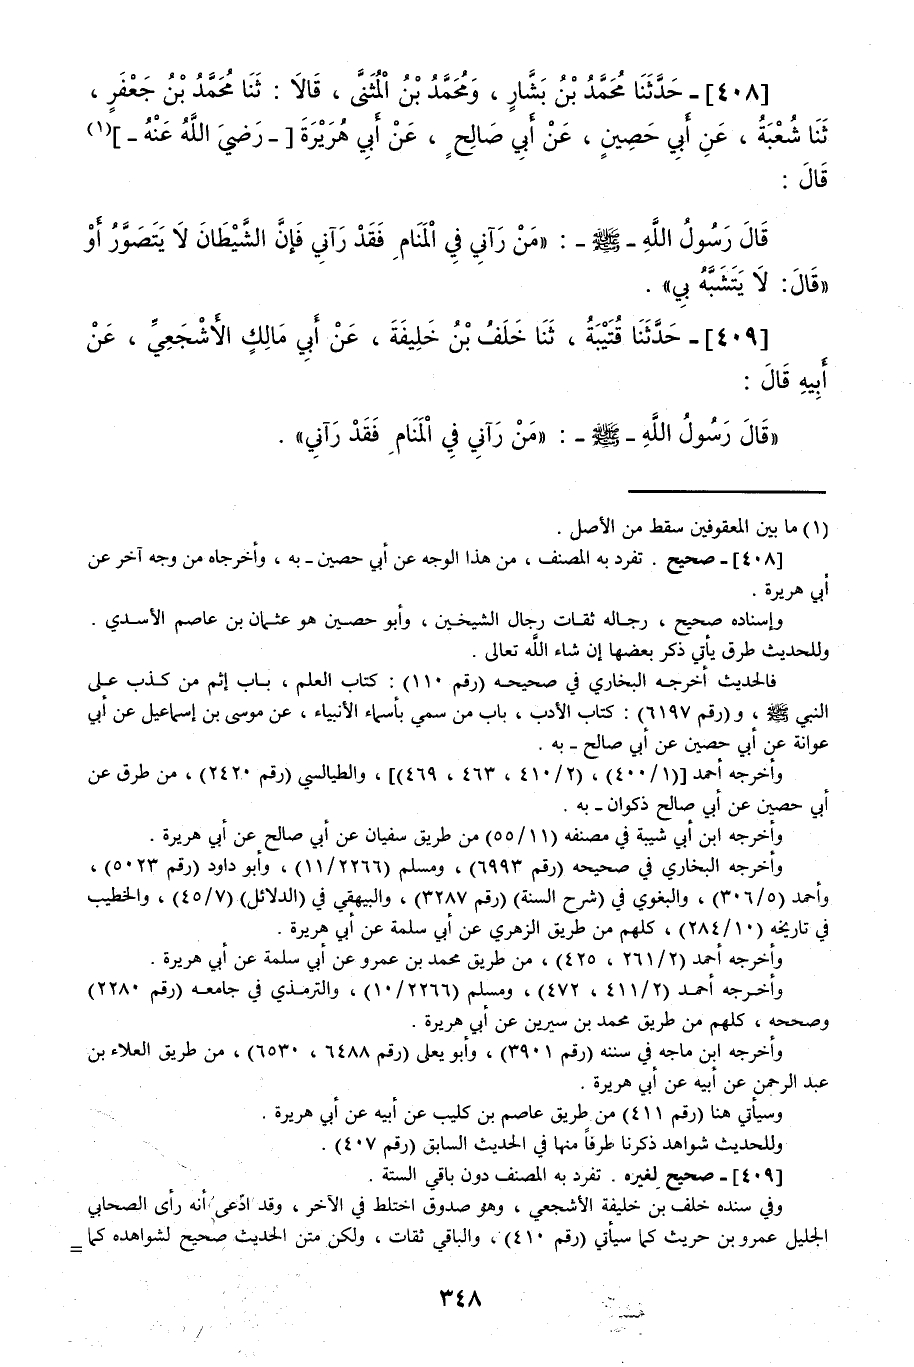 [٤٠٨]ـ حَدَّثَنَا مُحَمَّدُ بْنُ بَشَّارٍ ، وَمُحَمَّدُ بْنُ الْمُثَنَّى ، قَالَا : ثَنَا مُحَمَّدُ بْنُ جَعْفَرٍ ،
ثَنَا شُعْبَةُ ، عَنِ أَبِي حَصِينٍ ، عَنْ أَبِي صَالِحٍ ، عَنْ أَبِي هُرَيْرَةَ [ ـ رَضِيَ اللَّهُ عَنْهُ ـ ](١)
قَالَ :
قَالَ رَسُولُ اللَّهِ ـ ﷺ ـ : «مَنْ رَآنِي فِي الْمَنَامِ فَقَدْ رَآنِي فَإِنَّ الشَّيْطَانَ لَا يَتَصَوَّرُ أَوْ
«قَالَ: لَا يَتَشَبَّهُ بِي» .
[٤٠٩]ـ حَدَّثَنَا قُتَيْبَةُ ، ثَنَا خَلَفُ بْنُ خَلِيفَةَ ، عَنْ أَبِي مَالِكٍ الأَشْجَعِيِّ ، عَنْ
أَبِيهِ قَالَ :
«قَالَ رَسُولُ اللَّهِ ـ ﷺ ـ : «مَنْ رَآنِي فِي الْمَنَامِ فَقَدْ رَآنِي» .
(١) ما بين المعقوفين سقط من الأصل .
[٤٠٨]ـ صحيح . تفرد به المصنف ، من هذا الوجه عن أبي حصين ـ به ، وأخرجاه من وجه آخر عن
أبي هريرة .
وإسناده صحيح ، رجاله ثقات رجال الشيخين ، وأبو حصين هو عثمان بن عاصم الأسدي .
وللحديث طرق يأتي ذكر بعضها إن شاء اللَّه تعالى .
فالحديث أخرجه البخاري في صحيحه (رقم ١١٠) : كتاب العلم ، باب إثم من كذب على
النبي ﷺ ، و (رقم ٦١٩٧) : كتاب الأدب ، باب من سمي بأسماء الأنبياء ، عن موسى بن إسماعيل عن أبي
عوانة عن أبي حصين عن أبي صالح ـ به .
وأخرجه أحمد [(٤٠٠/١) ، (٤١٠/٢ ، ٤٦٣ ، ٤٦٩)] ، والطيالسي (رقم ٢٤٢٠) ، من طرق عن
أبي حصين عن أبي صالح ذكوان ـ به .
وأخرجه ابن أبي شيبة في مصنفه (٥٥/١١) من طريق سفيان عن أبي صالح عن أبي هريرة .
وأخرجه البخاري في صحيحه (رقم ٦٩٩٣) ، ومسلم (١١/٢٢٦٦) ، وأبو داود (رقم ٥٠٢٣) ،
وأحمد (٣٠٦/٥) ، والبغوي في (شرح السنة) (رقم ٣٢٨٧) ، والبيهقي في (الدلائل) (٤٥/٧) ، والخطيب
في تاريخه (٢٨٤/١٠) ، كلهم من طريق الزهري عن أبي سلمة عن أبي هريرة .
وأخرجه أحمد (٢٦١/٢ ، ٤٢٥) ، من طريق محمد بن عمرو عن أبي سلمة عن أبي هريرة .
وأخرجه أحمد (٤١١/٢ ، ٤٧٢) ، ومسلم (١٠/٢٢٦٦) ، والترمذي في جامعه (رقم ٢٢٨٠)
وصححه ، كلهم من طريق محمد بن سيرين عن أبي هريرة .
وأخرجه ابن ماجه في سننه (رقم ٣٩٠١) ، وأبو يعلى (رقم ٦٤٨٨ ، ٦٥٣٠) ، من طريق العلاء بن
عبد الرحمن عن أبيه عن أبي هريرة .
وسيأتي هنا (رقم ٤١١) من طريق عاصم بن كليب عن أبيه عن أبي هريرة .
وللحديث شواهد ذكرنا طرفاً منها في الحديث السابق (رقم ٤٠٧) .
[٤٠٩]ـ صحيح لغيره . تفرد به المصنف دون باقي الستة .
وفي سنده خلف بن خليفة الأشجعي ، وهو صدوق اختلط في الآخر ، وقد ادّعى أنه رأى الصحابي
الجليل عمرو بن حريث كما سيأتي (رقم ٤١٠) ، والباقي ثقات ، ولكن متن الحديث صحيح لشواهده كما =
٣٤٨